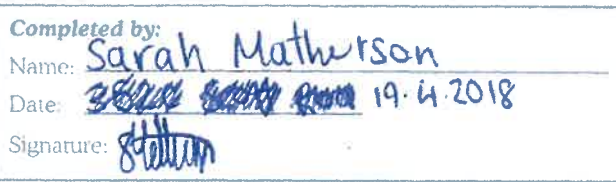 Completed by:
Name: Sarah Matherson
Date: 19.4.2018
Signature: